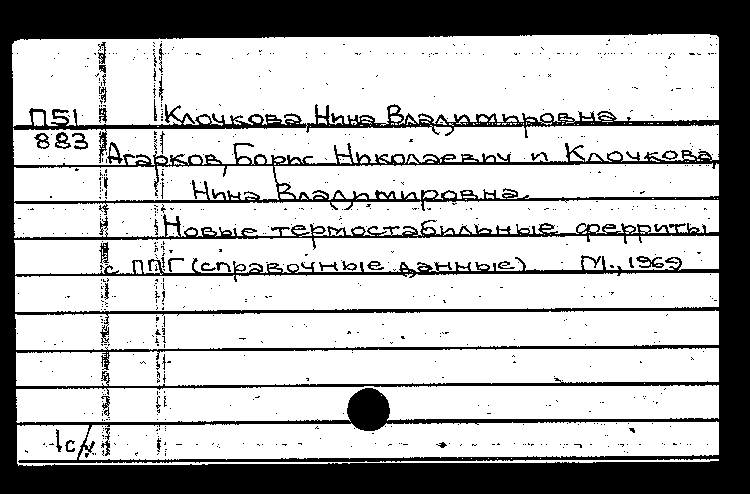 П51 Клочкова, Нина Владимировна.
883 Агарков, Борис Николаевич и Клочкова,
Нина Владимировна.
Новые термостабильные ферриты
с ППГ (справочные данные) М., 1969